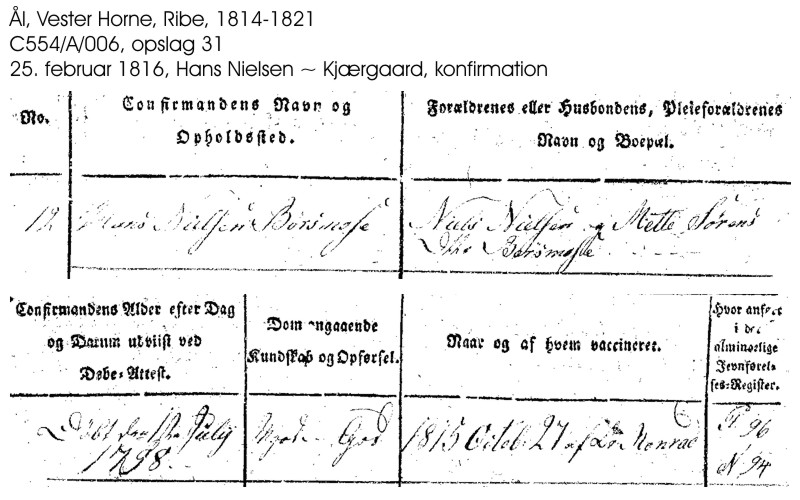 Ål, Vester Horne, Ribe, 1814-1821
C554/A/006, opslag 31
25. februar 1816, Hans Nielsen ~ Kjærgaard, konfirmation
No.
Confirmandens Navn og
Opholdssted.
Forældrenes eller Husbondens, Pleieforældrenes
Navn og Boepæl.
12
Hans Nielsen Børsmose
Niels Nielsen og Mette Sørens
Dtr Børsmose
Confirmandens Alder efter Dag
og Datum udviist ved
Døbe-Attest.
Dom angaaende
Kundskab og Opførsel.
Naar og af hvem vaccineret.
Hvor anført
i det
almindelige
Jevnførel-
ses-Register.
Døbt den 1ste Julij
1798.
Meget God
1815 Octob 27 af Dr Monrad
F 96
N 94